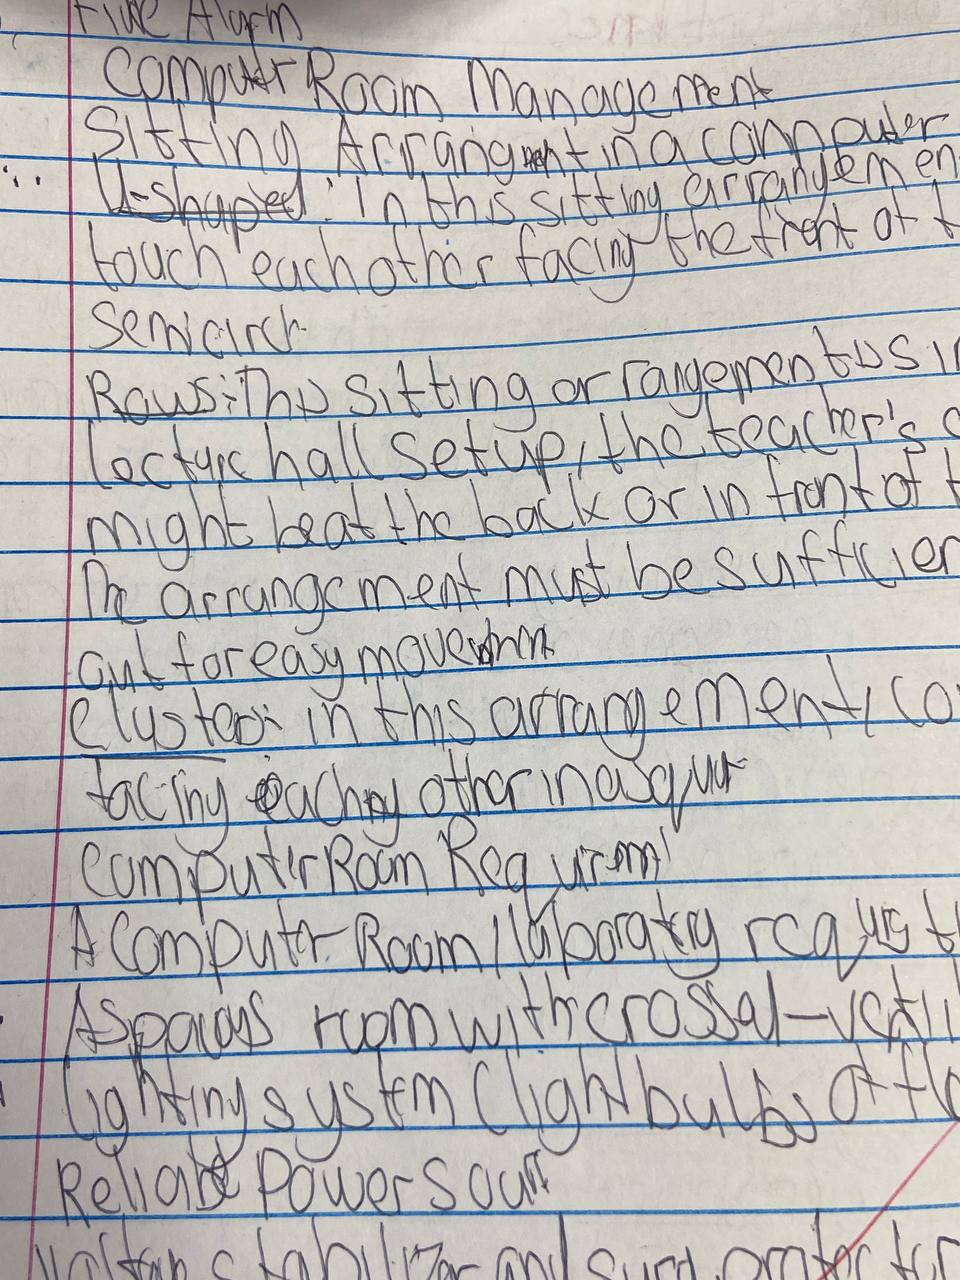 Fire Alarm
Computer Room Management
Sitting Arrangment in a computer
U-shaped: In this sitting arrangemen
touch each other facing the front of t
Semicirch
Rows: This sitting arrangement is in
lecture hall setup, the teacher's
might be at the back or in front of t
The arrangement must be sufficien
out for easy movemnt
Cluster: in this arrangement, co
facing each other in a squar
Computer Room Requirm
A Computer Room / laboratory requirs t
A spacious room with crossal-venti
lighting system (light bulbs of flo
Reliable Power Sour
voltage stabilizer and surg protector for